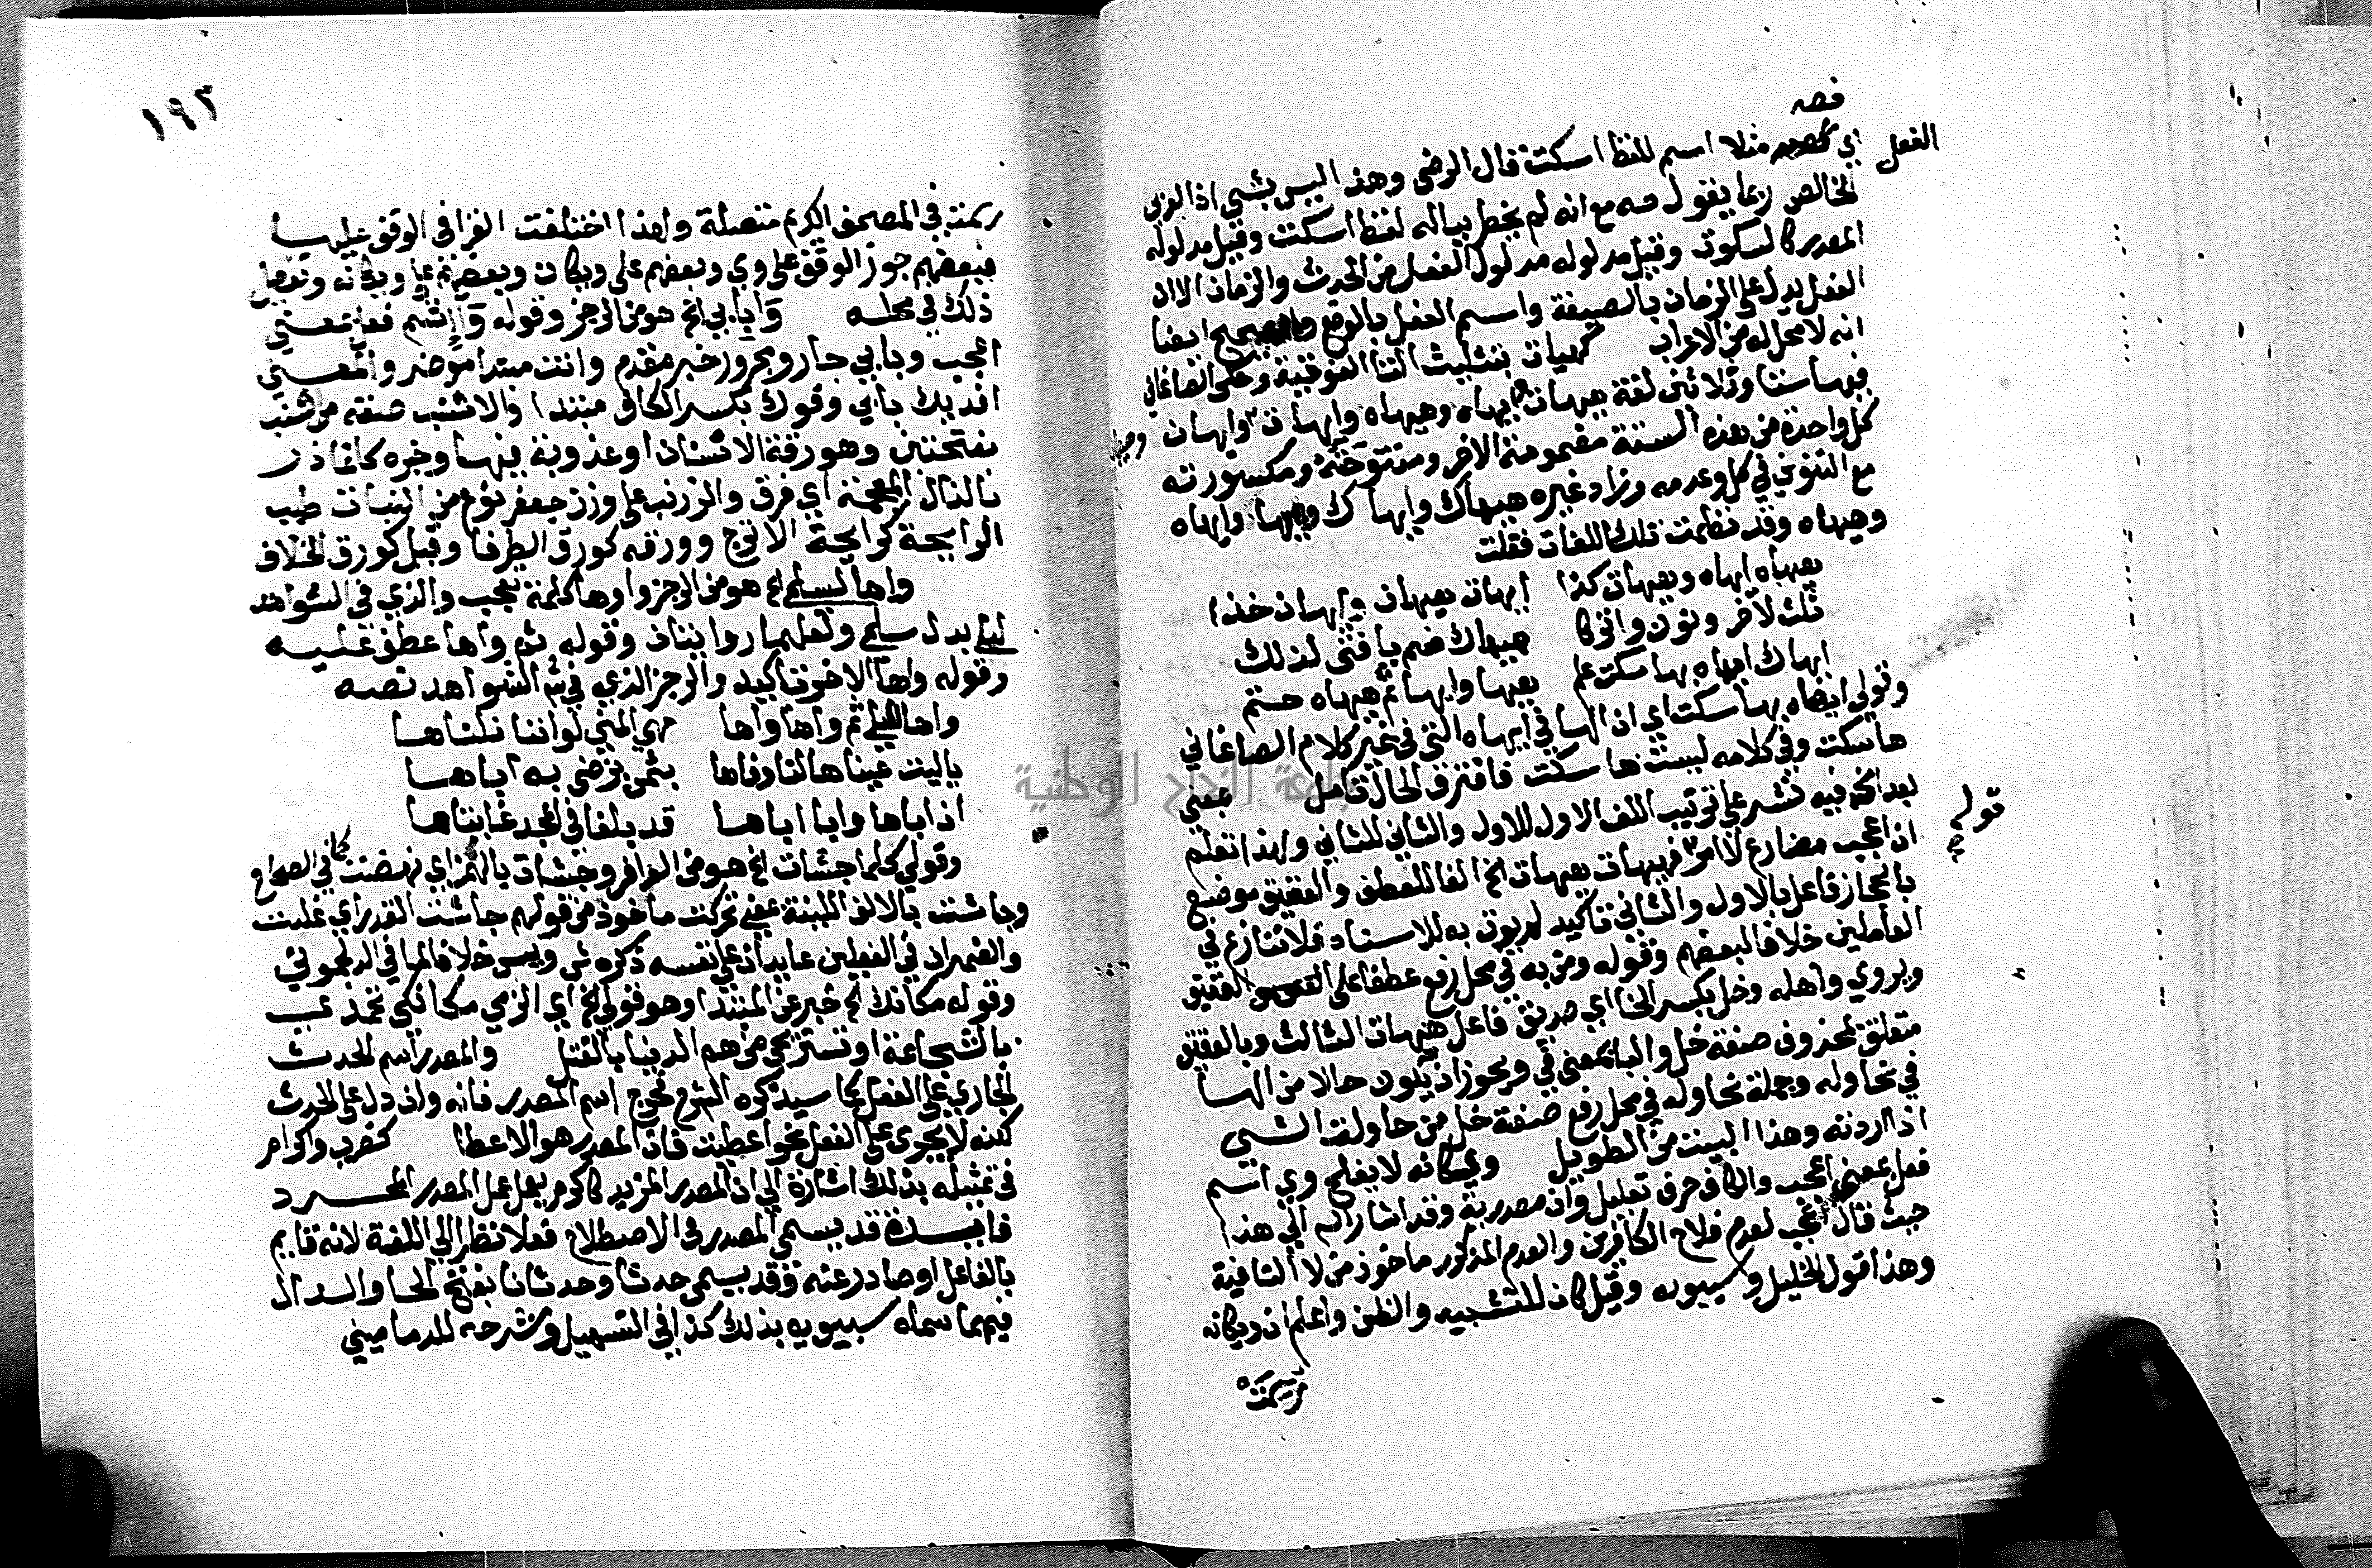 فصه
الفعل
اي كصه مثلا اسم للفظ اسكت قال الرضي وهذا ليس بشي اذ العربي
الخالص ربما يقول صه مع انه لم يخطر بباله لفظ اسكت وقيل مدلوله
المصدر كالسكوت وقيل مدلوله مدلول الفعل من الحدث والزمان الا ان
الفعل يدل على الزمان بالصيغة واسم الفعل بالوضع والصحيح ايضا
انه لا محل له من الاعراب كهيهات بتثليث التا الفوقية وحكى الصاغاني
فيها ستا وثلاثين لغة هيهات ايهاه وهيهاه وايهات وايهان وهيهان
كل واحدة من هذه الستة مضمومة الاخر ومفتوحته ومكسورته
مع التنوين في كل وعدمه وزاد غيره هيهاك وايهاك وهيها وايهاه
وهيهاه وقد نظمت تلك اللغات فقلت
هيهاه ايهاه وهيهات كذا ايهات هيهان وايهان خذا
ثلث لآخر ونون واتركا هيهاك ضم يا فتى لذلك
ايهاك ايهاه بها سكت علم هيها وايها ثم هيهاه ختم
وقولي ايهاه بها سكت اي ان الها في ايهاه التي في غير كلام الصاغاني
ها سكت وفي كلامه ليست ها سكت فافترق الحال تامل بمعنى
بعد الخ فيه نشر على ترتيب اللف الاول للاول والثاني للثاني وبهذا تعلم
قوله
ان اعجب مضارع لا امر فهيهات هيهات الخ الفا للعطف والعقيق موضع
بالحجاز فاعل بالاول والثاني تاكيد لم يوت به للاسناد فلا تنازع في
العاملين خلافا لبعضهم وقوله ومن به في محل رفع عطفا على العقيق
ويروي واهله وخل بكسر الخا اي صديق فاعل هيهات الثالث وبالعقيق
متعلق بمحذوف صفة خل والبا بمعنى في ويجوز ان يكون حالا من الها
في نحاوله وجملة نحاوله في محل رفع صفة خل من حاولت الشي
اذا اردته وهذا البيت من الطويل ويكانه لا يفلح وي اسم
فعل بمعنى اعجب والكاف حرف تعليل وان مصدرية وقد اشار الى هذا
حيث قال اعجب لعدم فلاح الكافرين والعدم المذكور ماخوذ من لا النافية
وهذا قول الخليل وسيبويه وقيل كان للتشبيه والظن واعلم ان ويكانه
رسمت
١٩٢
رسمت في المصحف الكريم متصلة ولهذا اختلفت القرا في الوقف عليها
فبعضهم جوز الوقف على وي وبعضهم على ويكان وبعضهم على ويكانه وتفصيل
ذلك في محله وا بابي الخ هو من الرجز وقوله وا اسم فعل بمعنى
اعجب وبابي جار ومجرور خبر مقدم وانت مبتدا موخر والمعنى
افديك بابي وفوك بكسر الكاف مبتدا والاشنب صفته من الشنب
بفتحتين وهو رقة الاسنان او عذوبة فيها وخبره كانما ذر
بالذال المعجمة اي فرق والزرنب على وزن جعفر نوع من النبات طيب
الرايحة كرايحة الاترج وورقه كورق الطرفا وقيل كورق الخلاف
واها لسلمى الخ هو من الرجز واها كلمة تعجب والذي في الشواهد
ليلى بدل سلمى ولعلهما روايتان وقوله ثم واها عطف عليه
وقوله واها الاخر تاكيد والرجز الذي في ش الشواهد نصه
واها لليلى ثم واها واها هي المنى لو اننا نلناها
يا ليت عيناها لنا وفاها بثمن نرضي به اباها
ان اباها وابا اباها قد بلغا في المجد غايتاها
وقولي كلما جشات الخ هو من الوافر وجشات بالهمز اي نهضت كما في الصحاح
وجاشت بالالف اللينة بمعنى تحركت ماخوذ من قولهم جاشت القدر اي غلت
والضميران في الفعلين عايدان على نفسه ذكره ش ويس خلافا لما في الدلجموني
وقوله مكانك الخ خبر عن المبتدا وهو قولي الخ اي الزمي مكانكي تحمدي
بالشجاعة او تستريحي من هم الدنيا بالقتل والمصدر اسم الحدث
الجاري على الفعل كما سيذكره الشرح فخرج اسم المصدر فانه وان دل على الحدث
لكنه لا يجري على الفعل نحو اعطيت فان المصدر هو الاعطا كضرب واكرام
في تمثيله بذلك اشارة الى ان المصدر المزيد كاكرم يعمل عمل المصدر المجرد
فايدة قد يسمى المصدر في الاصطلاح فعلا نظرا الى اللغة لانه قايم
بالفاعل او صادر عنه وقد يسمى حدثا وحدثانا بفتح الحا والدال
فيهما سماه سيبويه بذلك كذا في التسهيل وشرحه للدماميني
جامعة النجاح الوطنية